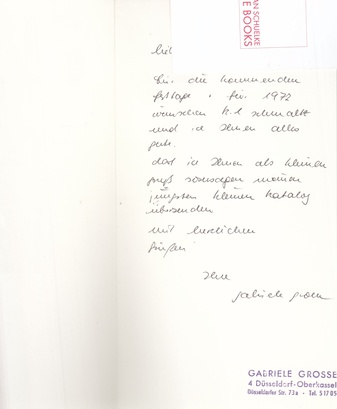 AN SCHUELKE
E BOOKS
lieb
für die kommenden
festtage + für 1972
wünschen k.l. schmaltz
und ich ihnen alles
gute.
darf ich ihnen als kleinen
gruß sozusagen meinen
jüngsten kleinen katalog
übersenden
mit herzlichen
grüßen
Ihre
gabriele grosse
GABRIELE GROSSE
4 Düsseldorf-Oberkassel
Düsseldorfer Str. 73a - Tel. 517 05